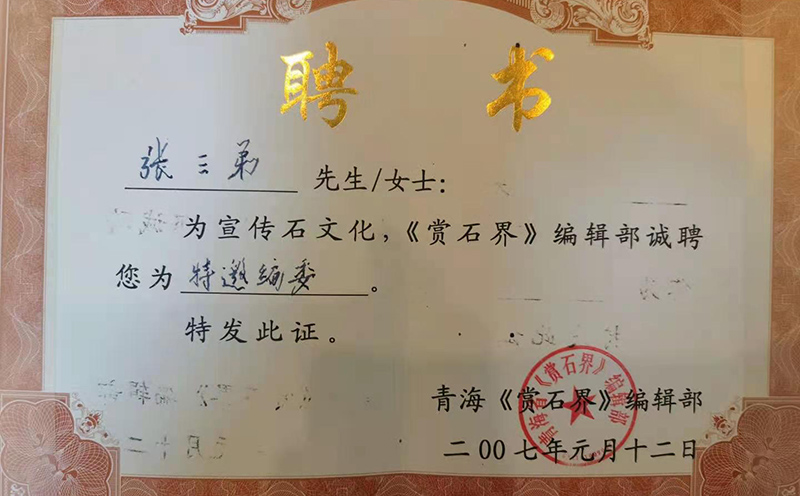 聘书
张三弟 先生/女士：
为宣传石文化，《赏石界》编辑部诚聘
您为 特邀编委 。
特发此证。
青海《赏石界》编辑部
二00七年元月十二日
青海省《赏石界》编辑部